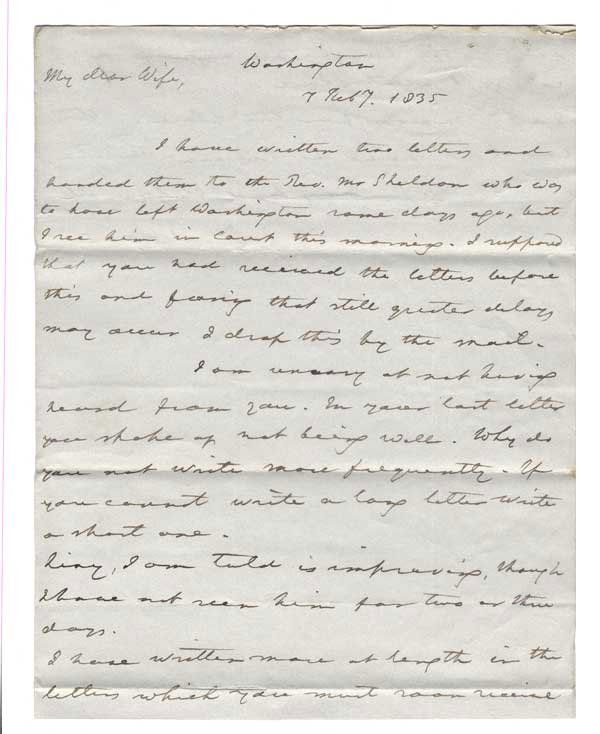 Washington
My dear Wife,
7 Feby. 1835
I have written two letters and
handed them to the Rev. Mr Sheldon who was
to have left Washington some days ago, but
I see him in Court this morning. I supposed
that you had received the letters before
this and fearing that still greater delays
may occur I drop this by the mail.
I am uneasy at not having
heard from you. In your last letter
you spoke of not being well. Why do
you not write more frequently. If
you cannot write a long letter write
a short one.
I am told is improving, though
I have not seen him for two or three
days.
I have written more at length in the
letters which you must soon receive